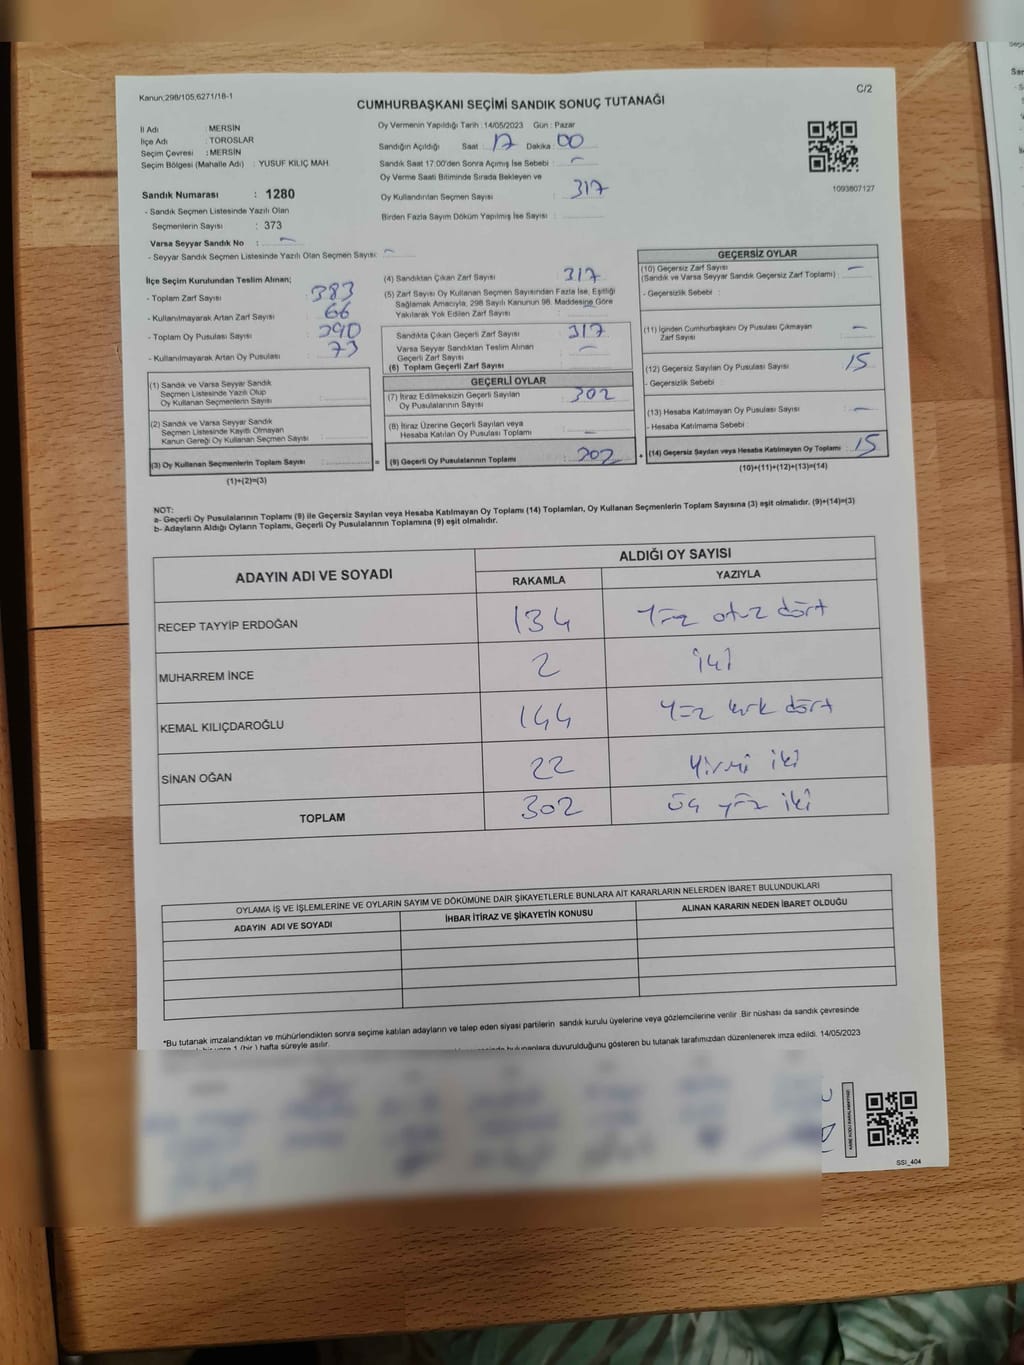 Kanun;298/105,6271/18-1
C/2
CUMHURBAŞKANI SEÇİMİ SANDIK SONUÇ TUTANAĞI
İl Adı : MERSİN
İlçe Adı : TOROSLAR
Seçim Çevresi : MERSİN
Seçim Bölgesi (Mahalle Adı) : YUSUF KILIÇ MAH.
Sandık Numarası : 1280
- Sandık Seçmen Listesinde Yazılı Olan
Seçmenlerin Sayısı : 373
Varsa Seyyar Sandık No : -
- Seyyar Sandık Seçmen Listesinde Yazılı Olan Seçmen Sayısı: -
Oy Vermenin Yapıldığı Tarih :14/05/2023 Gün : Pazar
Sandığın Açıldığı Saat : 17 Dakika : 00
Sandık Saat 17.00'den Sonra Açılmış İse Sebebi : -
Oy Verme Saati Bitiminde Sırada Bekleyen ve
Oy Kullandırılan Seçmen Sayısı : 317
Birden Fazla Sayım Döküm Yapılmış İse Sayısı :
1093807127
İlçe Seçim Kurulundan Teslim Alınan;
- Toplam Zarf Sayısı : 383
- Kullanılmayarak Artan Zarf Sayısı : 66
- Toplam Oy Pusulası Sayısı : 390
- Kullanılmayarak Artan Oy Pusulası : 73
(1) Sandık ve Varsa Seyyar Sandık
Seçmen Listesinde Yazılı Olup
Oy Kullanan Seçmenlerin Sayısı :
(2) Sandık ve Varsa Seyyar Sandık
Seçmen Listesinde Kayıtlı Olmayan
Kanun Gereği Oy Kullanan Seçmen Sayısı :
(3) Oy Kullanan Seçmenlerin Toplam Sayısı :
(1)+(2)=(3)
(4) Sandıktan Çıkan Zarf Sayısı : 317
(5) Zarf Sayısı Oy Kullanan Seçmen Sayısından Fazla İse, Eşitliği
Sağlamak Amacıyla, 298 Sayılı Kanunun 98. Maddesine Göre
Yakılarak Yok Edilen Zarf Sayısı : -
Sandıkta Çıkan Geçerli Zarf Sayısı : 317
Varsa Seyyar Sandıktan Teslim Alınan
Geçerli Zarf Sayısı : -
(6) Toplam Geçerli Zarf Sayısı
GEÇERLİ OYLAR
(7) İtiraz Edilmeksizin Geçerli Sayılan
Oy Pusulalarının Sayısı : 302
(8) İtiraz Üzerine Geçerli Sayılan veya
Hesaba Katılan Oy Pusulası Toplamı : -
= (9) Geçerli Oy Pusulalarının Toplamı : 302
GEÇERSİZ OYLAR
(10) Geçersiz Zarf Sayısı : -
(Sandık ve Varsa Seyyar Sandık Geçersiz Zarf Toplamı)
- Geçersizlik Sebebi :
(11) İçinden Cumhurbaşkanı Oy Pusulası Çıkmayan
Zarf Sayısı : -
(12) Geçersiz Sayılan Oy Pusulası Sayısı : 15
- Geçersizlik Sebebi :
(13) Hesaba Katılmayan Oy Pusulası Sayısı : -
- Hesaba Katılmama Sebebi :
+ (14) Geçersiz Sayılan veya Hesaba Katılmayan Oy Toplamı : 15
(10)+(11)+(12)+(13)=(14)
NOT:
a- Geçerli Oy Pusulalarının Toplamı (9) ile Geçersiz Sayılan veya Hesaba Katılmayan Oy Toplamı (14) Toplamları, Oy Kullanan Seçmenlerin Toplam Sayısına (3) eşit olmalıdır. (9)+(14)=(3)
b- Adayların Aldığı Oyların Toplamı, Geçerli Oy Pusulalarının Toplamına (9) eşit olmalıdır.
ADAYIN ADI VE SOYADI
ALDIĞI OY SAYISI
RAKAMLA YAZIYLA
RECEP TAYYİP ERDOĞAN 134 Yüz otuz dört
MUHARREM İNCE 2 iki
KEMAL KILIÇDAROĞLU 144 Yüz kırk dört
SİNAN OĞAN 22 Yirmi iki
TOPLAM 302 üç yüz iki
OYLAMA İŞ VE İŞLEMLERİNE VE OYLARIN SAYIM VE DÖKÜMÜNE DAİR ŞİKAYETLERLE BUNLARA AİT KARARLARIN NELERDEN İBARET BULUNDUKLARI
ADAYIN ADI VE SOYADI İHBAR İTİRAZ VE ŞİKAYETİN KONUSU ALINAN KARARIN NEDEN İBARET OLDUĞU
*Bu tutanak imzalandıktan ve mühürlendikten sonra seçime katılan adayların ve talep eden siyasi partilerin sandık kurulu üyelerine veya gözlemcilerine verilir .Bir nüshası da sandık çevresinde
1 (bir) hafta süreyle asılır.
bulunanlara duyurulduğunu gösteren bu tutanak tarafımızdan düzenlenerek imza edildi. 14/05/2023
SSİ_404